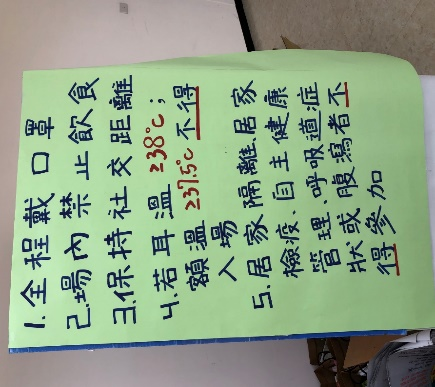 1.全程戴口罩
2.場內禁止飲食
3.保持社交距離
4.若耳溫≥38°C；
額溫≥37.5°C不得
入場
5.居家隔離、居家
檢疫、自主健康
管理、呼吸道症
狀或腹瀉者不
得參加